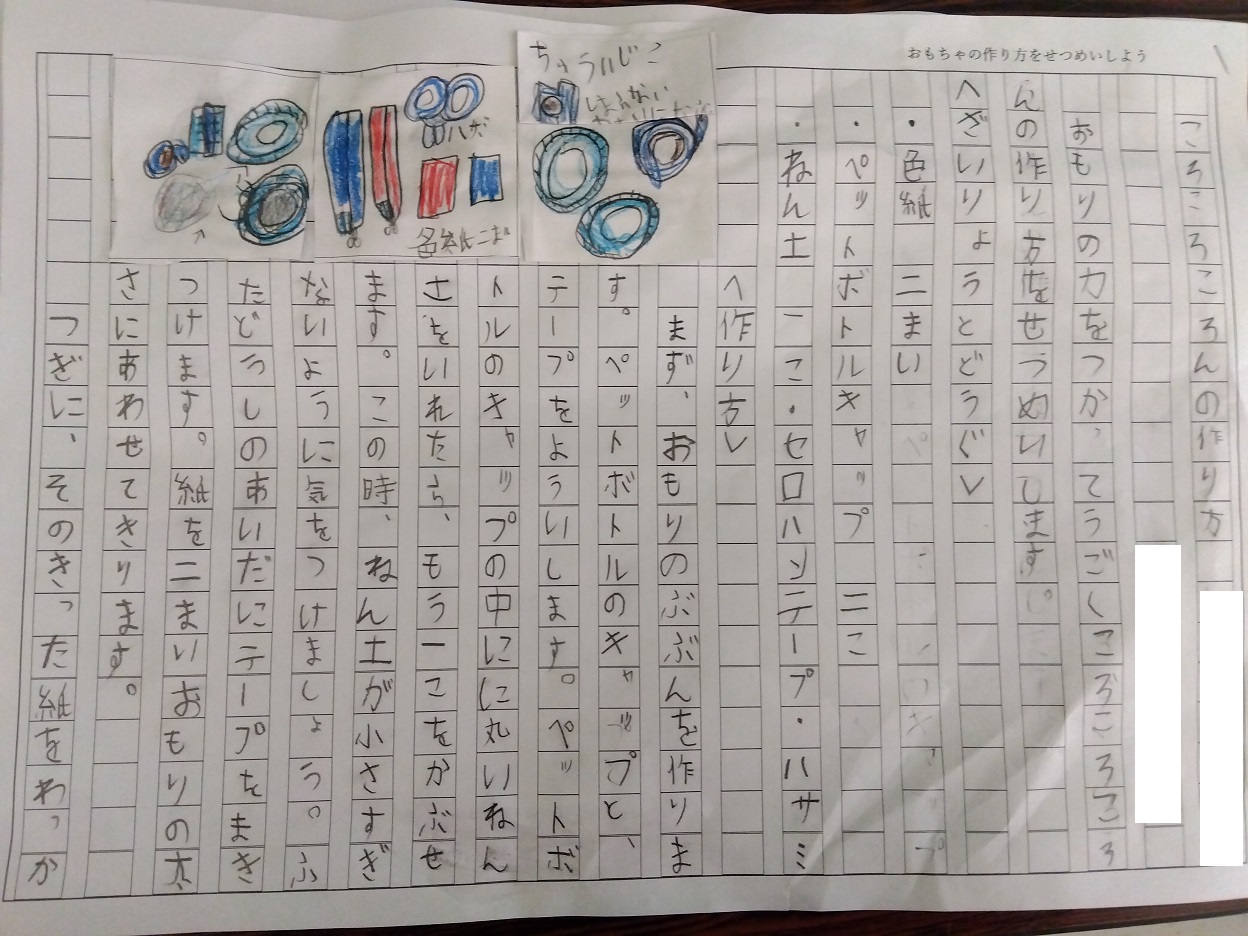 おもちゃの作り方をせつめいしよう
ころころころんの作り方
おもりの力をつかってうごくころころころ
んの作り方をせつめいします。
<ざいりょうとどうぐ>
・色紙二まい
・ペットボトルキャップ二こ
・ねん土一こ・セロハンテープ・ハサミ
<作り方>
まず、おもりのぶぶんを作りま
す。ペットボトルのキャップと、
テープをよういします。ペットボ
トルのキャップの中にに丸いねん
土をいれたら、もう一こをかぶせ
ます。この時、ねん土が小さすぎ
ないように気をつけましょう。ふ
たどうしのあいだにテープをまき
つけます。紙を二まいおもりの太
さにあわせてきります。
つぎに、そのきった紙をわっか
ちゅういじこ